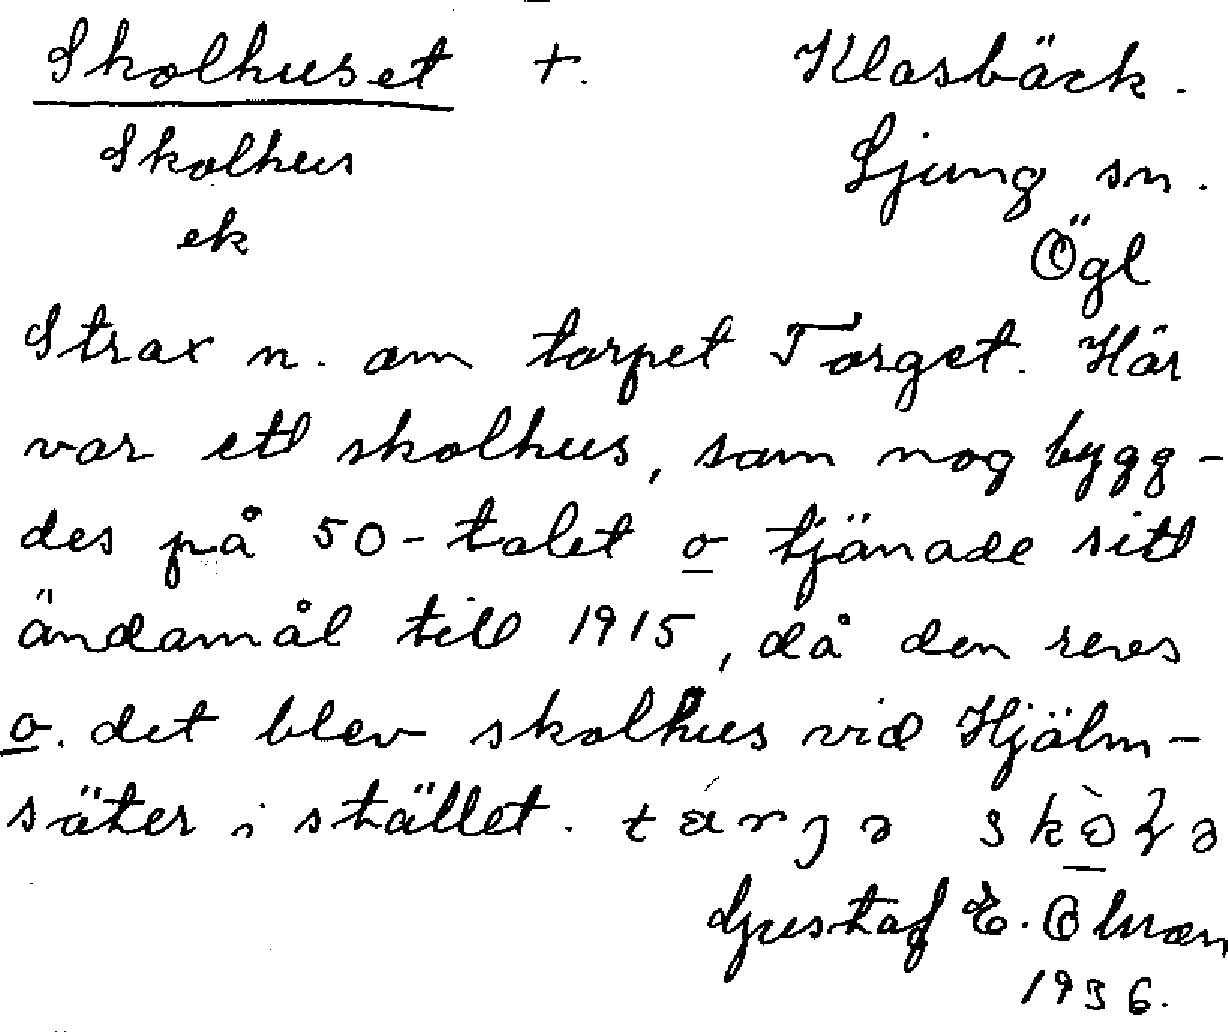 Skolhuset +. Klasbäck.
Skolhus Ljung sn.
ek Ögl
Strax n. om torpet Torget. Här
var ett skolhus, som nog bygg-
des på 50-talet o tjänade sitt
ändamål till 1915, då den revs
o. det blev skolhus vid Hjälm-
säter i stället.
Gustaf E.
1936.